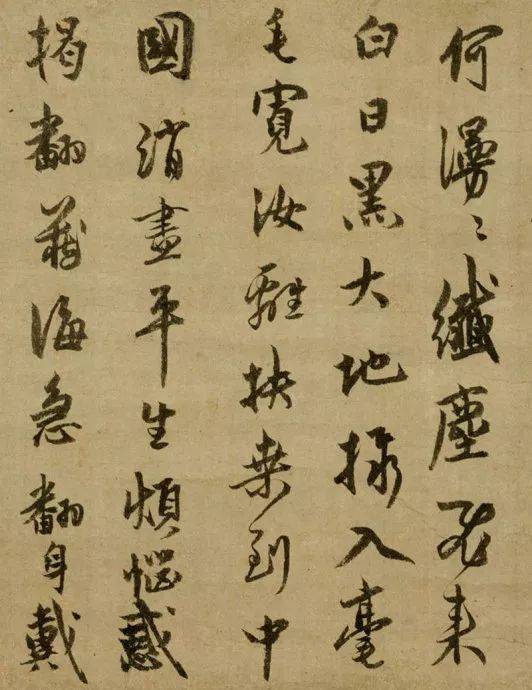 何漫〻纖塵飛来
白日黑大地入毫
毛寬汝離扶桒到中
國消盡平生煩惱惑
揭翻藏海急翻身戴